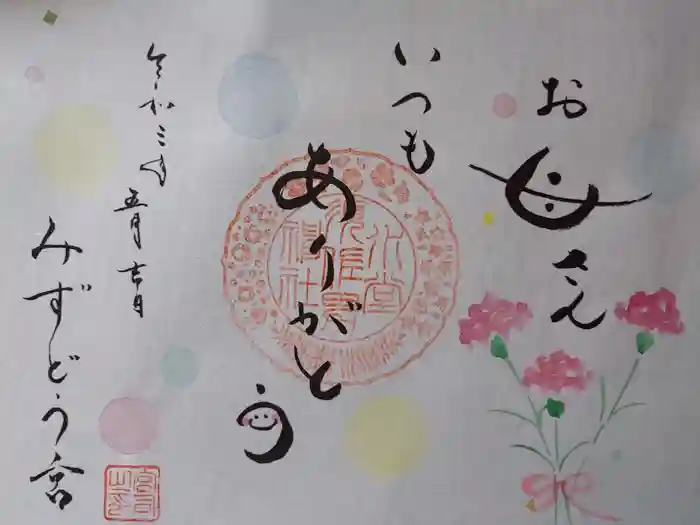 お母さん
いつも
ありがとう
令和三年
五月吉日
みずどう宮